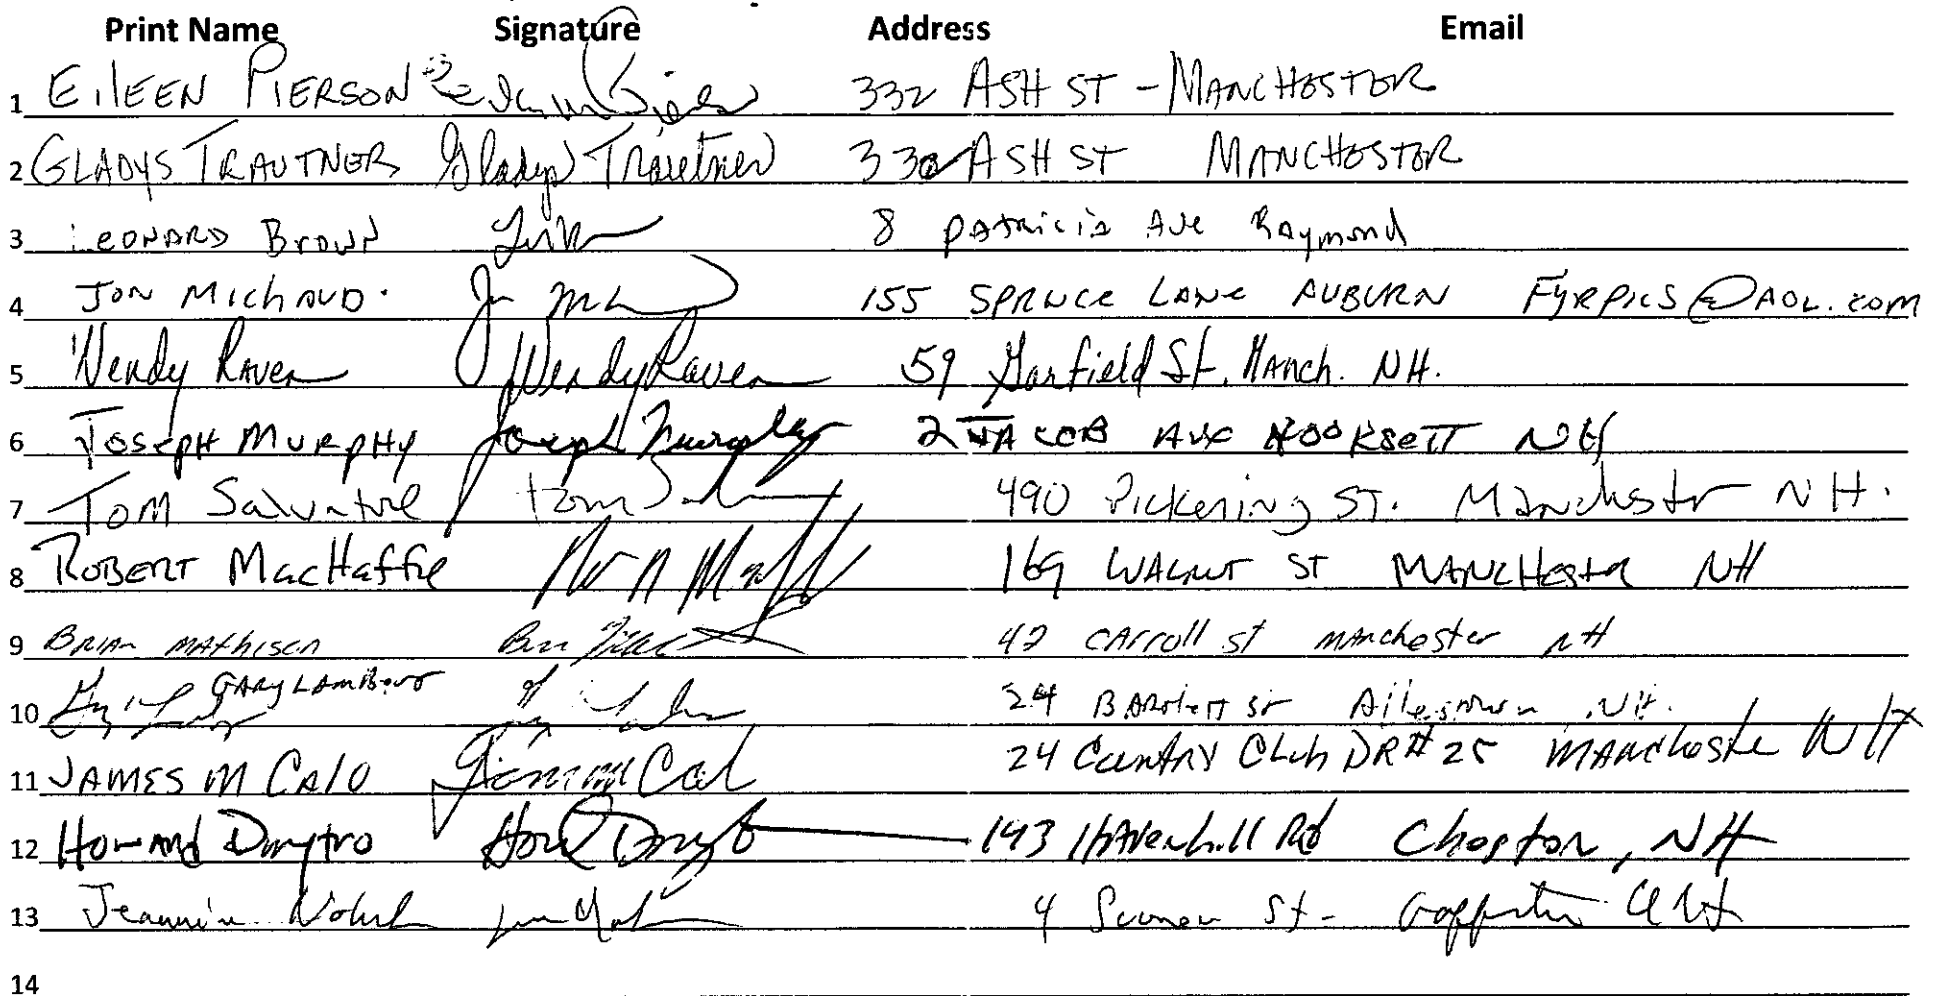 Print Name Signature Address Email
1 EILEEN PIERSON 332 ASH ST - MANCHESTER
2 GLADYS TRAUTNER Gladys Trautner 332 ASH ST MANCHESTER
3 LEONARD BROWN 8 PATRICIA AVE Raymond
4 JON MICHAUD. 155 SPRUCE LANE AUBURN FYRPICS@AOL.COM
5 Wendy Raven Wendy Raven 59 Garfield St. Manch. NH.
6 JOSEPH MURPHY Joseph Murphy 2 JACOB AVE HOOKSETT NH
7 TOM Salvatore Tom 490 Pickering ST. Manchester NH.
8 ROBERT MacHaffie 169 WALNUT ST MANCHester NH
9 BRIAN MAthisen 42 CArroll st mAnchester NH
10 GARY LAMBERT 24 BARtlett St NH.
11 JAMES M CALO James M Cal 24 Country Club DR # 25 MANCHester NH
12 Howard Dmytro 143 HAverhill Rd Chester, NH
13 4 St - NH
14